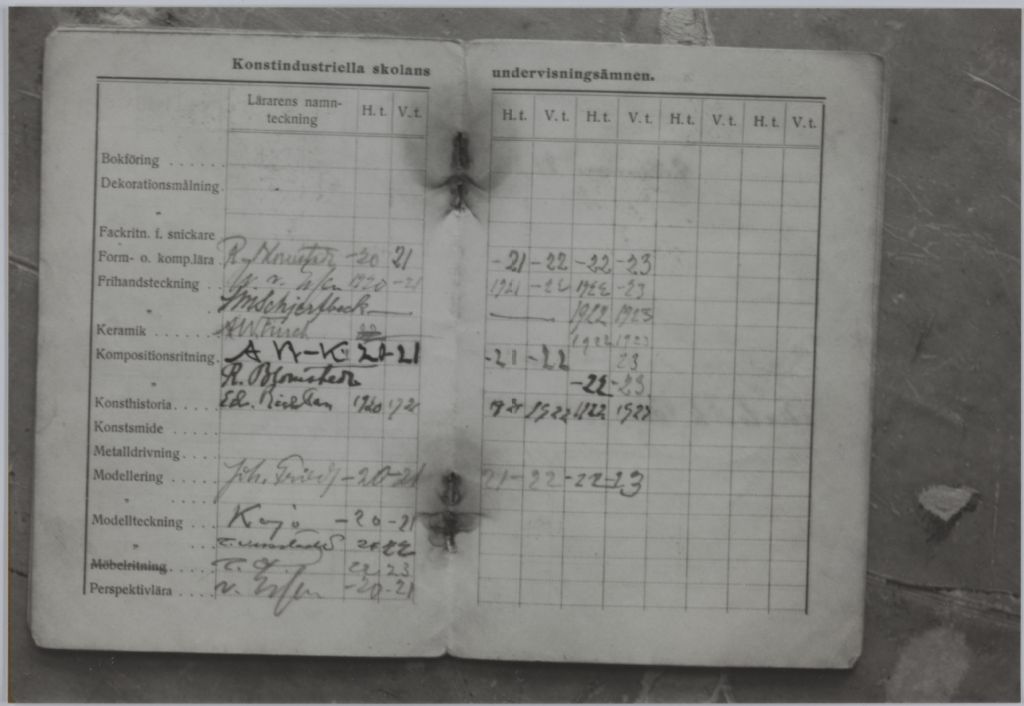 Konstindustriella skolans undervisningsämnen.
Lärarens namn- H. t. V. t. H. t. V. t. H. t. V. t. H. t. V. t. H. t. V. t.
teckning
Bokföring . . . . . .
Dekorationsmålning .
"
Fackritn. f. snickare
Form- o. komp.lära . R. Blomstedt -20 21 -21 -22 -22 -23
Frihandsteckning . . 1920 -21 1921 -22 1922 -23
" HMSchjerfbeck 1922 1923
Keramik . . . . . A W Finch 1922 1923
Kompositionsritning . A W-K 20-21 -21 -22 23
" R. Blomstedt -22 -23
Konsthistoria . . . . . Edv. Richter 1920 1921 1921 1922 1922 1923
Konstsmide . . . .
Metalldrivning . . . .
Modellering . . . . Joh. -20-21 21-22-22-23
" . . . .
Modellteckning . . . Kajo -20 -21
" . . . 21 22
Möbelritning . . . . 22 23
Perspektivlära . . . v. Essen -20-21